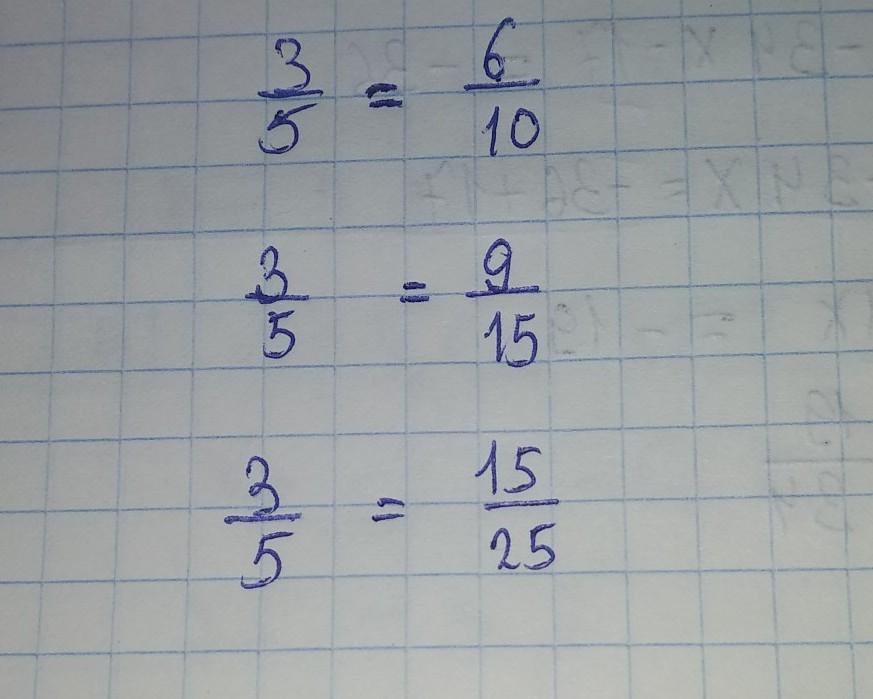 3/5 = 6/10
3/5 = 9/15
3/5 = 15/25